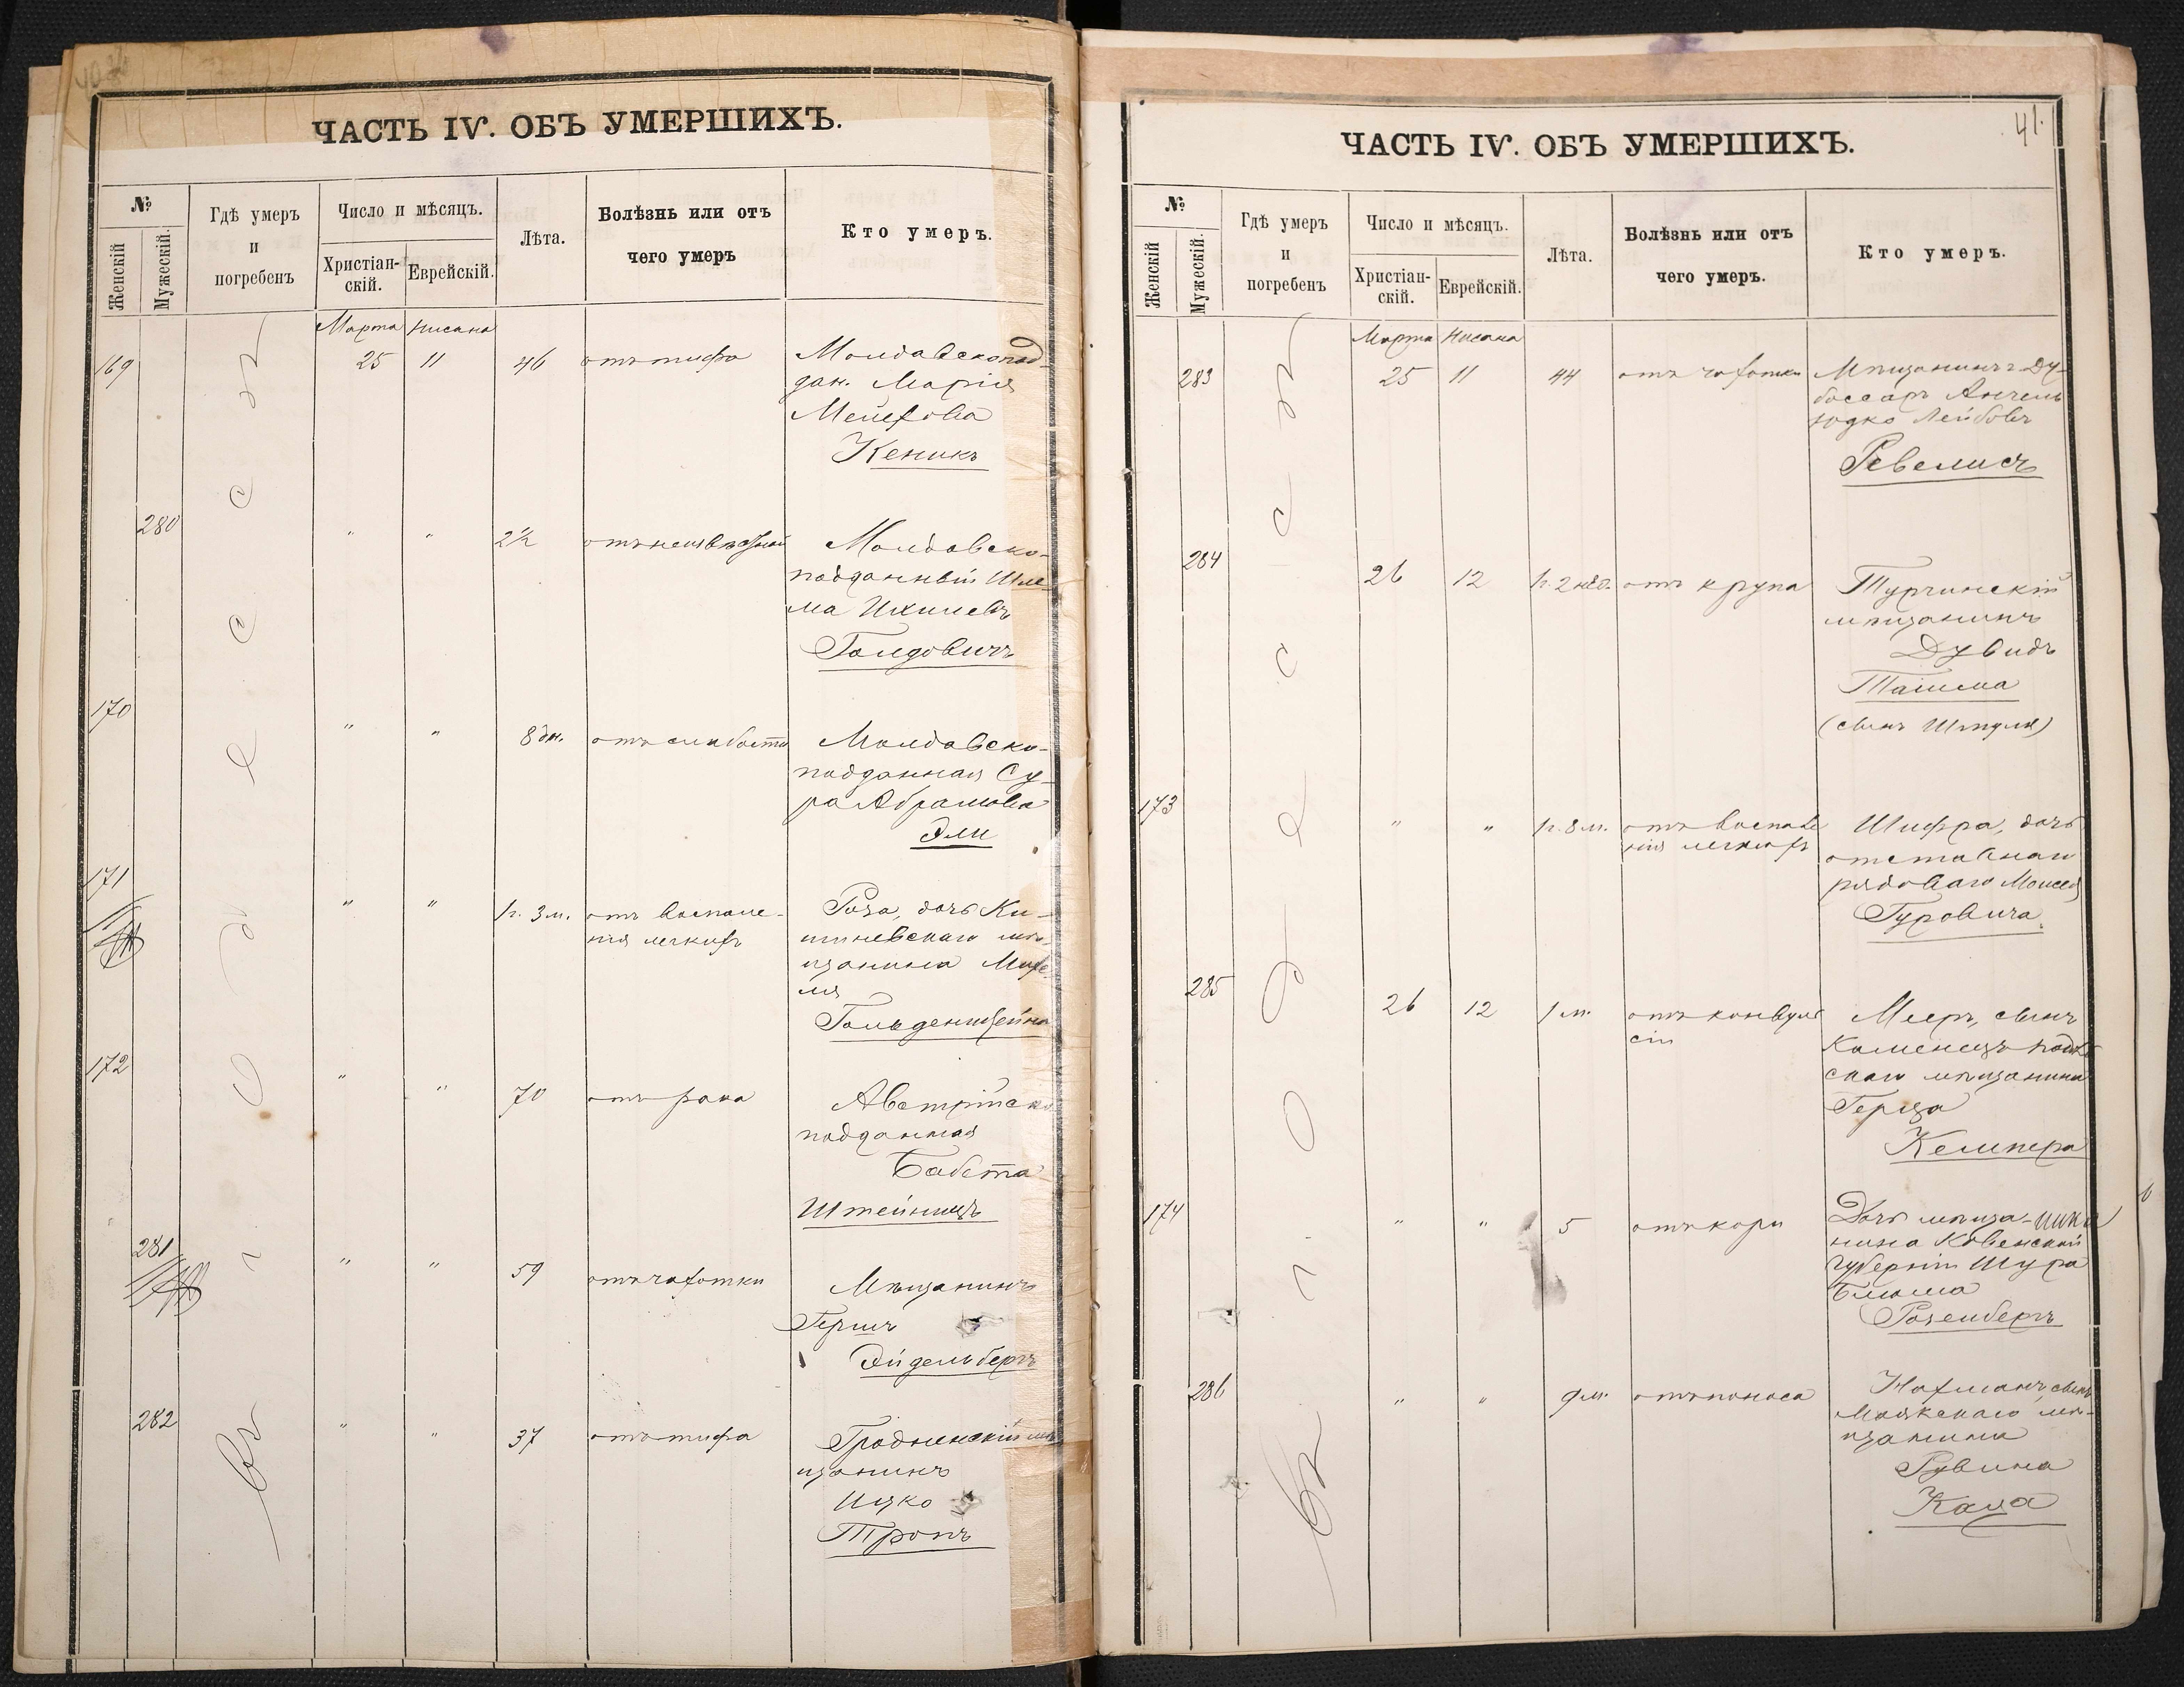 ЧАСТЬ IV. ОБЪ УМЕРШИХЪ.
№
Женскій
Мужескій.
Гдѣ умеръ
и
погребенъ
Число и мѣсяцъ.
Христіан-
скій.
Еврейскій.
Лѣта.
Болѣзнь или отъ
чего умеръ
Кто умеръ.
въ г. Одессѣ
Марта Нисана
169 25 11 46 отъ тифа Молдавскопод-
дан. Марія
Мейерова
Кеникъ
280 " " 2½ отъ неизвѣстной Молдавско-
подданный Шле-
ма Ихилевъ
Голдовичъ
170 " " 8 дн. отъ слабости Молдавско-
подданная Су-
ра Абрамова
Эли
171 " " 1 г. 3 м. отъ воспале- Роза, дочь Ки-
нія легкихъ шиневскаго мѣ-
щанина Михе-
ля
Гольденштейна
172 " " 70 отъ рака Австрійско
подданная
Бабета
281 " " 59 отъ чахотки Мѣщанинъ
Гершъ
Эйдельбергъ
282 " " 37 отъ тифа Гродненскій мѣ
щанинъ
Ицко
Тропъ
ЧАСТЬ IV. ОБЪ УМЕРШИХЪ.
41.
№
Женскій
Мужескій.
Гдѣ умеръ
и
погребенъ
Число и мѣсяцъ.
Христіан-
скій.
Еврейскій.
Лѣта.
Болѣзнь или отъ
чего умеръ.
Кто умеръ.
въ г. Одессѣ
Марта Нисана
283 25 11 44 отъ чахотки Мѣщанинъ г. Ду-
боссаръ Анчель
Юдко Лейбовъ
Ревелисъ
284 26 12 1 г. 2 нед. отъ крупа Турчинскій
мѣщанинъ
Дувидъ
(сынъ Шмуля)
173 " " 1 г. 8 м. отъ воспале Шифра, дочь
нія легкихъ отставнаго
рядоваго Моисея
Гуровича.
285 26 12 1 м. отъ конвуль Мееръ, сынъ
сіи Каменецъ-Подол
скаго мѣщанина
Герца
Кемпера
174 " " 5 отъ кори Дочь мѣща-
нина Ковенской
губерніи Шура
Блюма
Розенбергъ
286 " " 9 м. отъ поноса Нахманъ, сынъ
Маякскаго мѣ-
щанина
Рувина
Каца